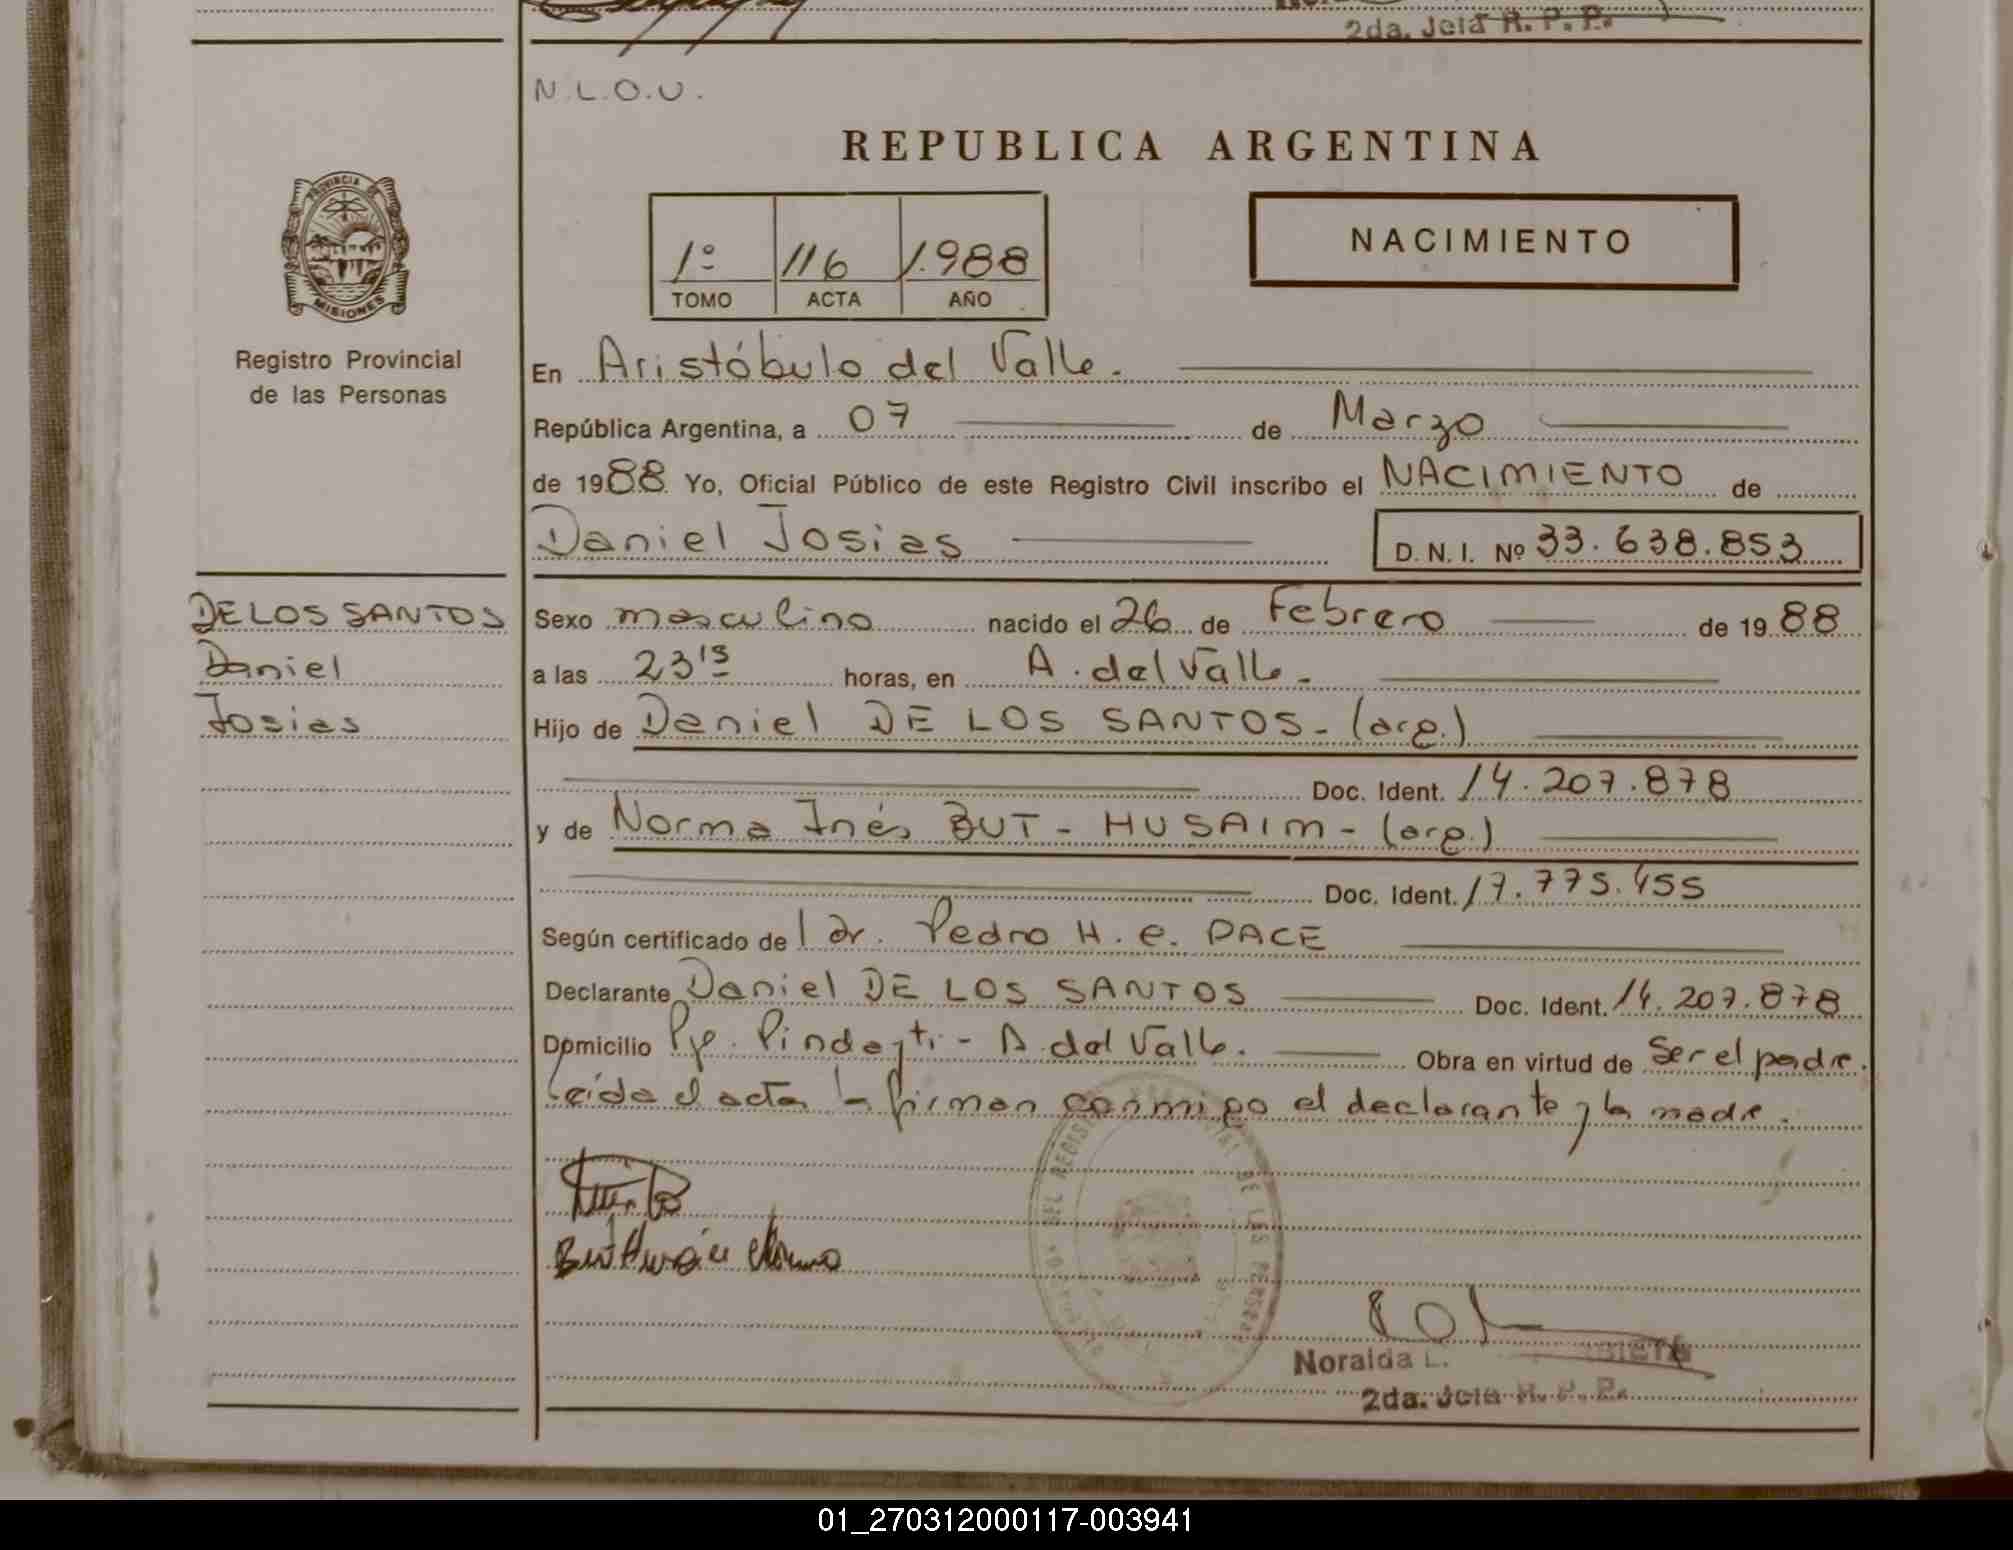 2da. Jefa R. P. P.
N.L.O.U.
REPUBLICA ARGENTINA
PROVINCIA DE
MISIONES
1º 116 1.988
TOMO ACTA AÑO
NACIMIENTO
Registro Provincial
de las Personas
En Aristóbulo del Valle.
República Argentina, a 07 de Marzo
de 1988. Yo, Oficial Público de este Registro Civil inscribo el NACIMIENTO de
Daniel Josias D.N.I. Nº 33.638.853
DE LOS SANTOS
Daniel
Josias
Sexo masculino nacido el 26 de Febrero de 1988
a las 23 15 horas, en A. del Valle.
Hijo de Daniel DE LOS SANTOS - (arg.)
Doc. Ident. 14.207.878
y de Norma Inés BUT - HUSAIM - (arg.)
Doc. Ident. 17.775.455
Según certificado del Dr. Pedro H. e. PACE
Declarante Daniel DE LOS SANTOS Doc. Ident. 14.207.878
Domicilio Pje. - A. del Valle. Obra en virtud de Ser el padre.
Leída el acta la firman conmigo el declarante y la madre.
DEL REGISTRO DE LAS PERSONAS
But Norma
Noralda L.
2da. Jefa R. P. P.
01_270312000117-003941